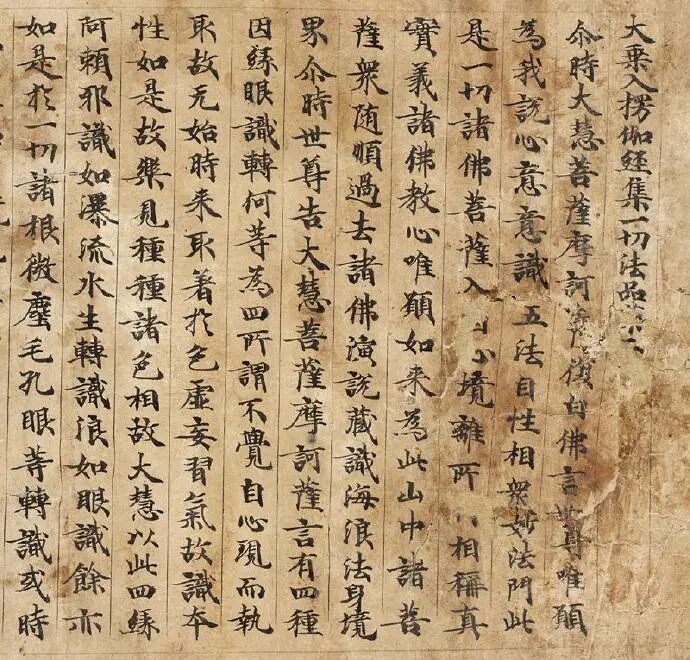 大乘入楞伽經集一切法品
尒時大慧菩薩摩訶薩復白佛言世尊唯願
為我說心意意識五法自性相衆妙法門此
是一切諸佛菩薩入心境離所相稱真
實義諸佛教心唯願如来為此山中諸菩
薩衆随順過去諸佛演說藏識海浪法身境
界尒時世尊告大慧菩薩摩訶薩言有四種
因緣眼識轉何等為四所謂不覺自心現而執
取故无始時来取著於色虛妄習氣故識本
性如是故樂見種種諸色相故大慧以此四緣
阿頼邪識如瀑流水生轉識浪如眼識餘亦
如是於一切諸根微塵毛孔眼等轉識或時